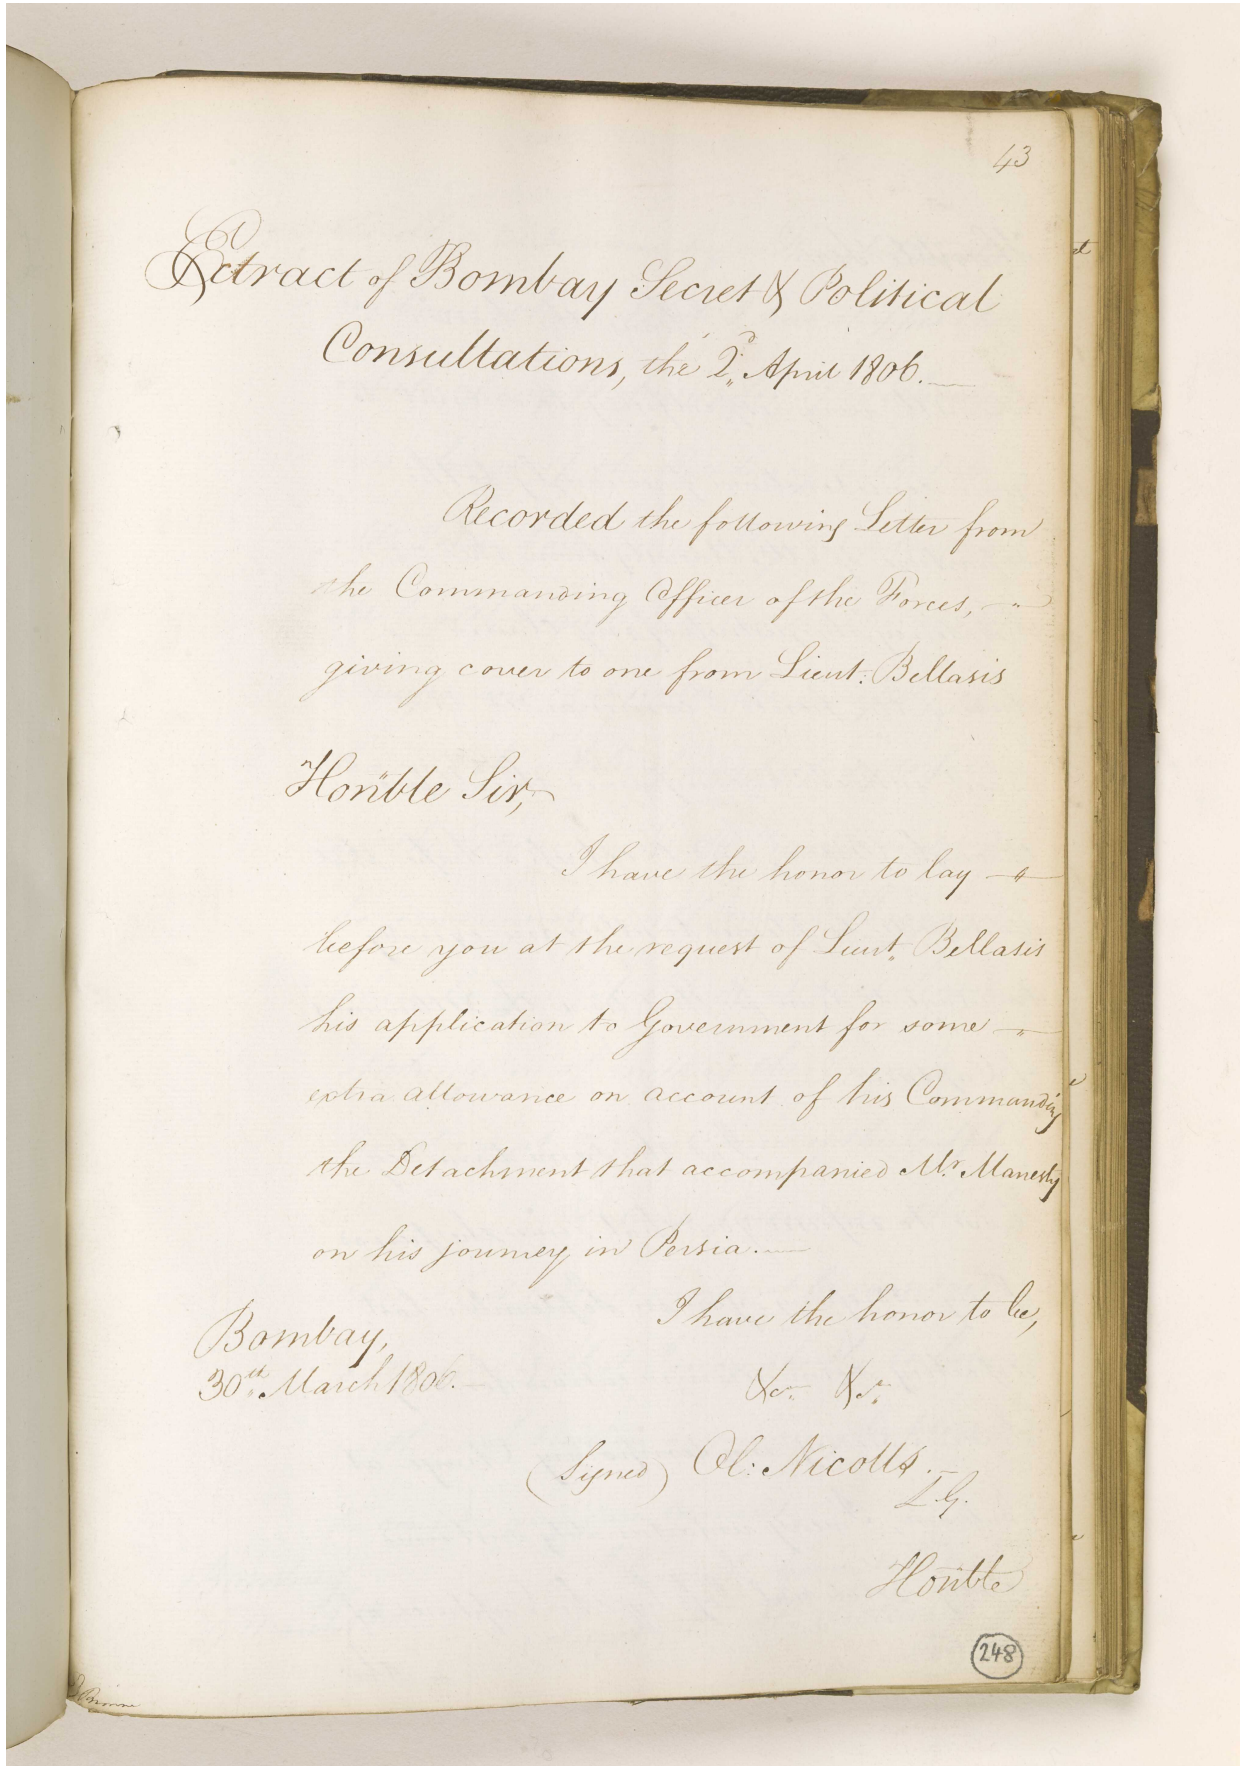 43
Extract of Bombay Secret & Political
Consultations, the 2d. April 1806.
Recorded the following Letter from
the Commanding Officer of the Forces,
giving cover to one from Lieut. Bellasis
Hon'ble Sir,
I have the honor to lay
before you at the request of Lieut. Bellasis
his application to Government for some
extra allowance on account of his Commanding
the Detachment that accompanied Mr. Manesty
on his journey in Persia.
I have the honor to be,
Bombay,
30th. March 1806.
&ca. &ca.
(Signed) Ol: Nicolls.
L.G.
Hon'ble
248